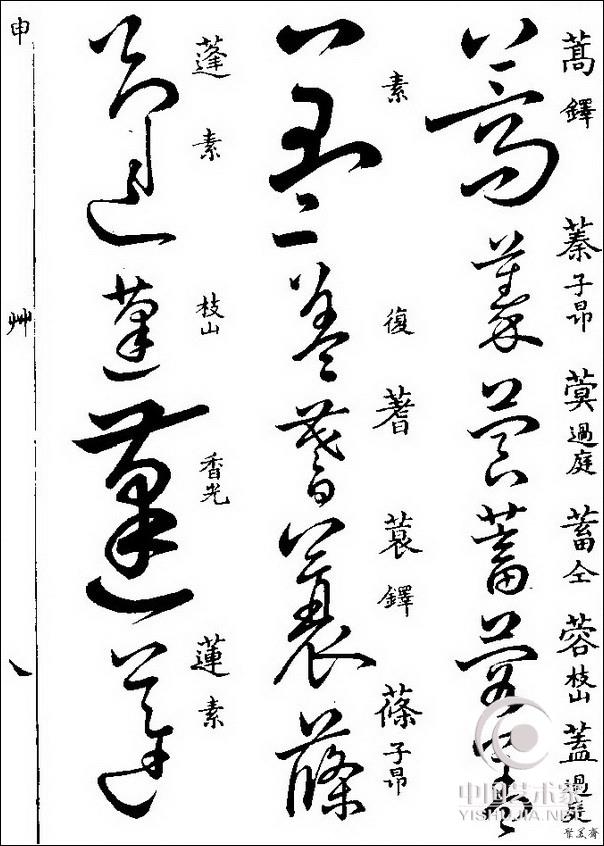 蒿 鐸
蓁 子昂
蓂 過庭
蓄 仝
蓉 枝山
蓋 過庭
素
復
蓍
蓑 鐸
蓧 子昂
蓬 素
枝山
香光
蓮 素
申
艸
八
中国艺术家
YISHUJIA.NET